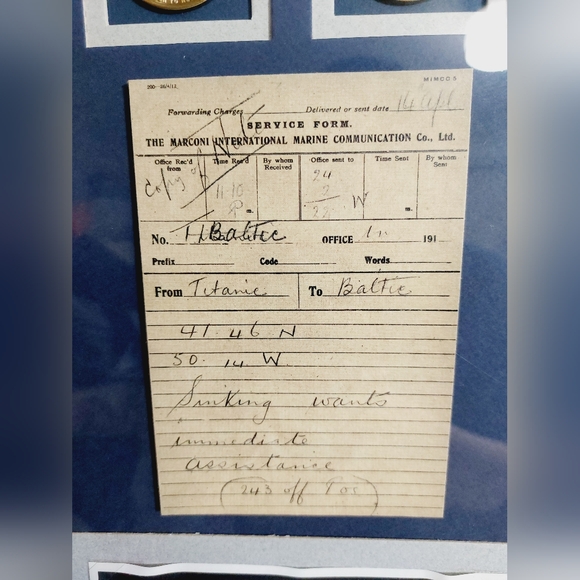 MIMCO 5
Forwarding Charges Delivered or sent date 14 Apl
SERVICE FORM.
THE MARCONI INTERNATIONAL MARINE COMMUNICATION Co., Ltd.
Office Rec'd from Time Rec'd By whom Received Office sent to Time Sent By whom Sent
Copy of Note 11-10 P m. 24 W m.
No. Baltic OFFICE 191
Prefix Code Words
From Titanic To Baltic
41. 46 N
50. 14 W.
Sinking wants
immediate
assistance
243 off